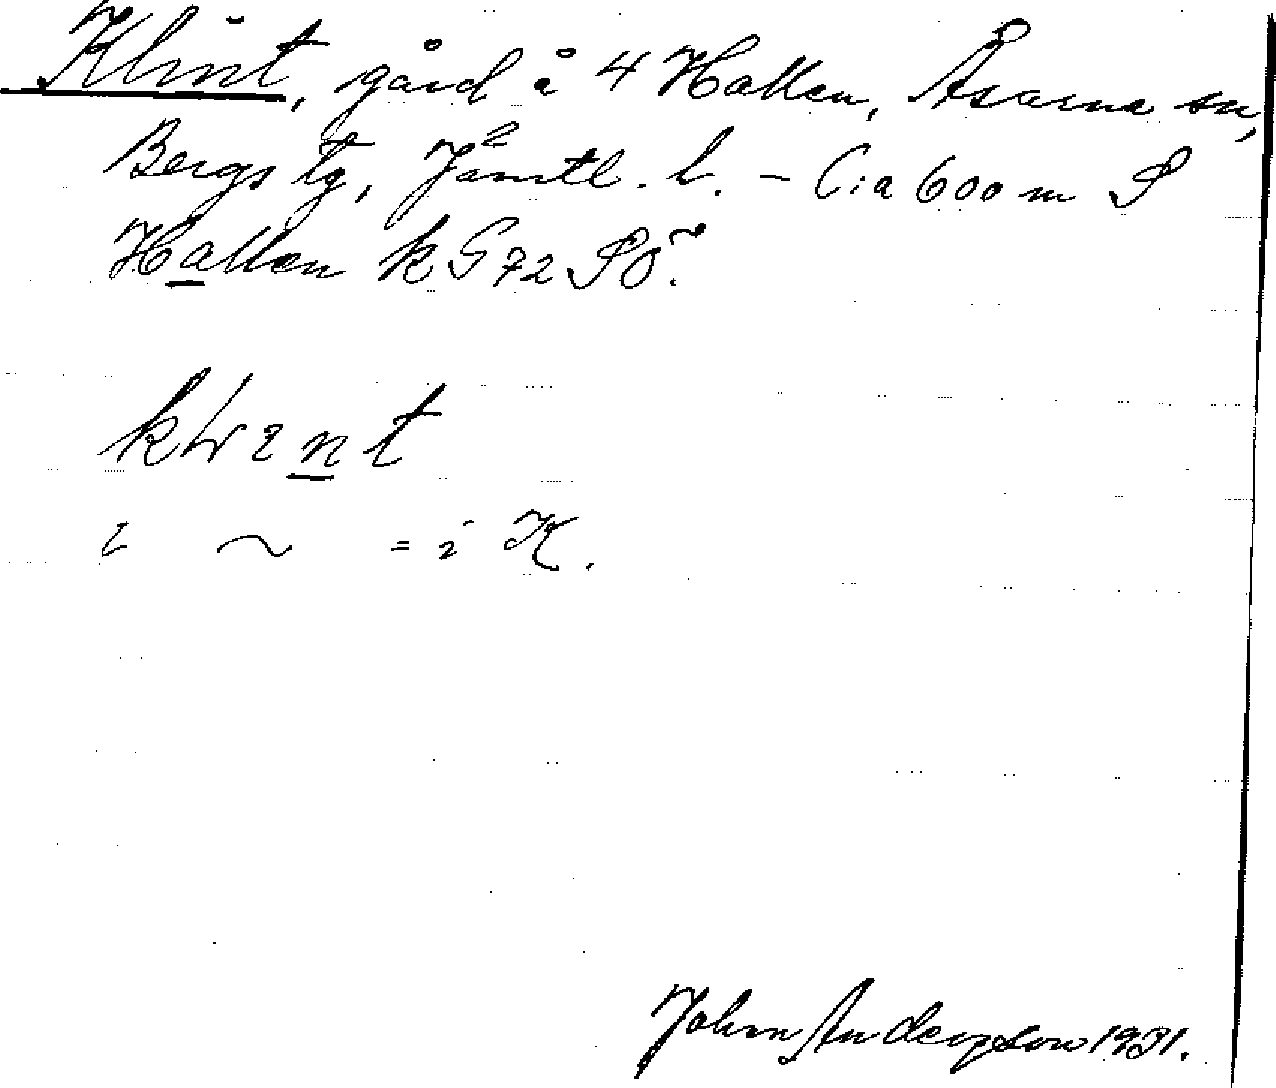 Klint, gård å 4 Hallen, Åsarne sn,
Bergs tg, Jämtl. l. – C:a 600 m S
Hallen k G 72 SÖ.
i ~ = i K.
John Anderson 1931.